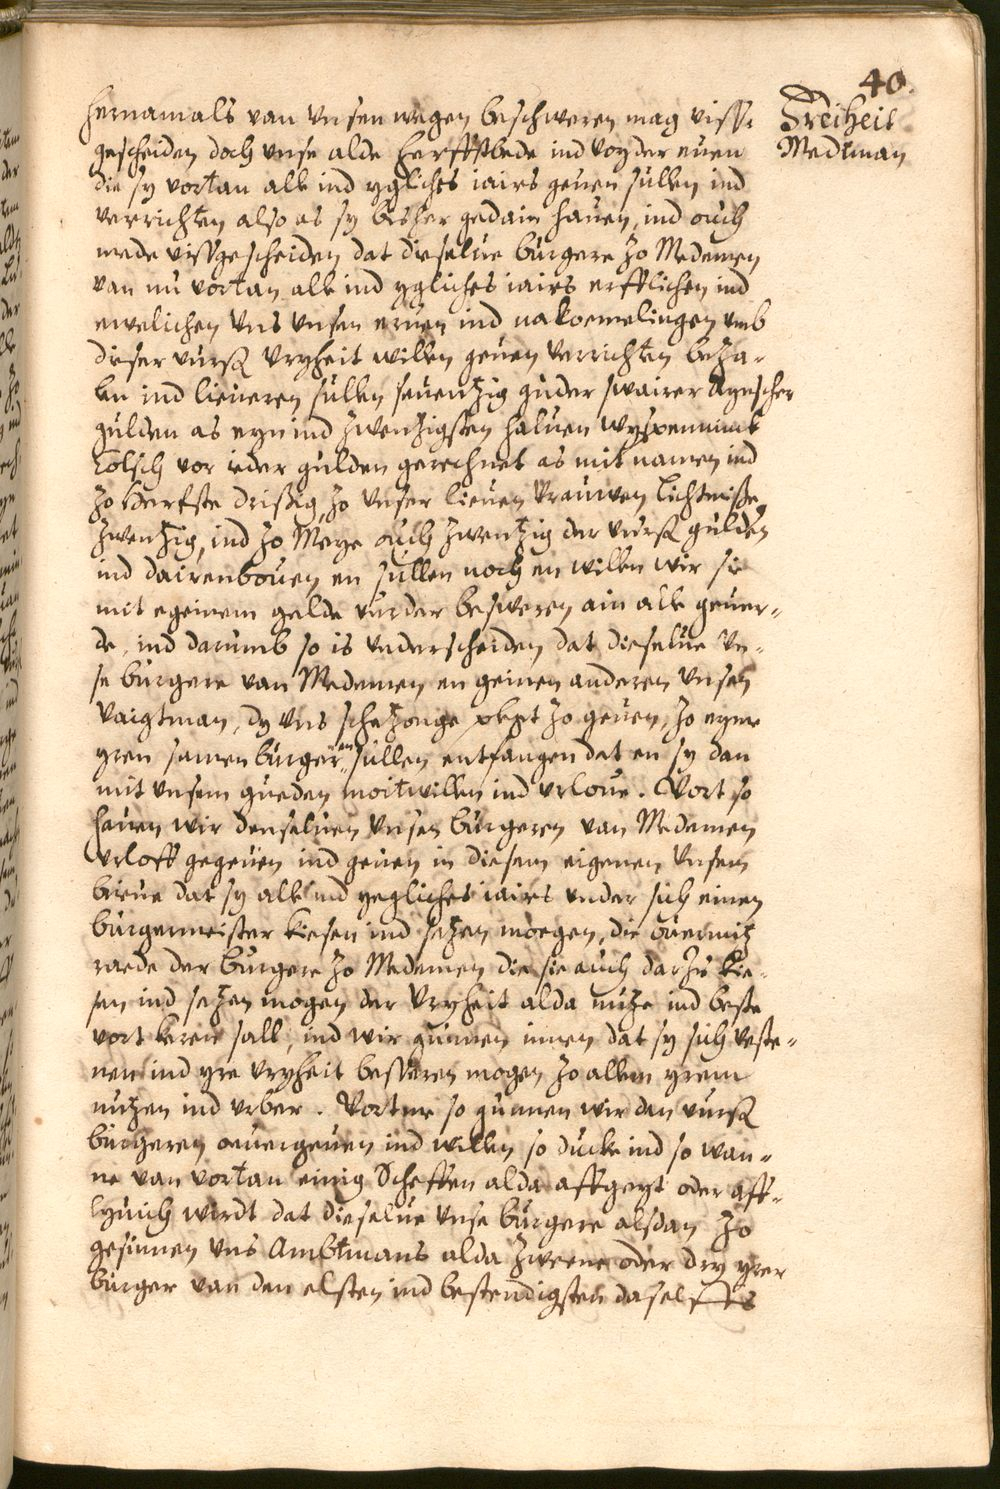 40.
Freiheit
Medtman
hernamals van vnsen wegen beschweren mag viss-
gescheiden doch vnse alde herffstbede ind voyder euen
die sy vortan alle ind ygliches iairs geuen sullen ind
verrichten also as sy bisher gedain hauen, ind ouch
mede vissgescheiden dat dieselue burgere zo Medemen
van nu vortan alle ind ygliches iairs erfflichen ind
ewelichen vns vnsen eruen ind nakoemelingen vmb
dieser vurß vryheit willen geuen verrichten beza-
len ind lieueren sullen seuentzig guder swairer Rynscher
gulden as eyn ind zwentzigsten haluen wyspennink
Colsch vor ieder gulden gerechnet as mit namen ind
zo herfste drißig, zo vnser lieuen vrauwen lichtmiße
zwentzig, ind zo Meye ouch zwentzig der vurß gulden
ind dairenbouen en sullen noch en willen wir sie
mit egeinem gelde vurder besweren ain alle geuer-
de, ind darumb so is vnderscheiden dat dieselue vn-
se burgere van Medemen en geinen anderen vnsen
vaigtman, dy vns schatzonge plegt zo geuen, zo eyme
yren samen burger en sullen entfangen dat en sy dan
mit vnsem gueden moitwillen ind vrloue. Vort so
hauen wir denseluen vnsen burgeren van Medemen
vrloff gegeuen ind geuen in diesem eigenen vnsem
brieue dat sy alle ind yegliches iairs vnder sich einen
burgermeister kiesen ind setzen moegen, die ouermitz
raede der burgere zo Medemen die sie auch darzu kie-
sen ind setzen mogen der vryheit alda nutze ind beste
vort keren sall, ind wir gunnen innen dat sy sich veste-
nen ind yre vryheit besseren mogen zo allem yrem
nutzen ind vrber. Vortme so gunnen wir den vurß
burgeren ouuergeuen ind willen so ducke ind so wan-
ne van vortan einig Scheffen alda affgeyt oder aff-
lyuich wirdt dat dieselue vnse burgere alsdan zo
gesinnen vns Ambtmans alda zweene oder dry yrer
burger van den elsten ind bestendigsten daselffs